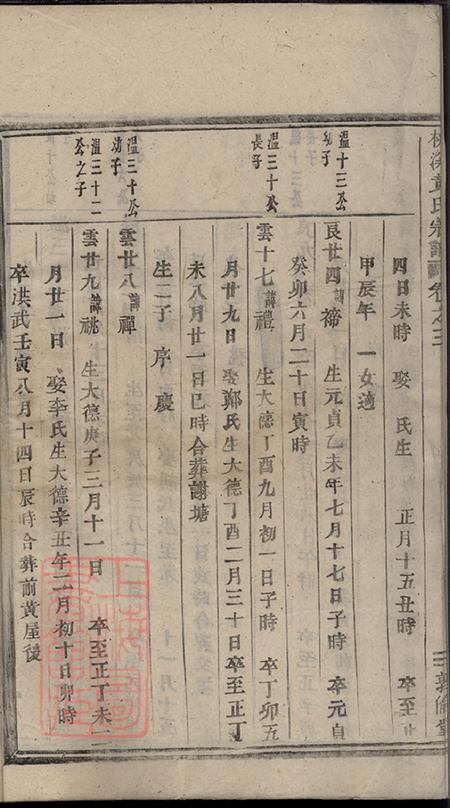 黄氏宗譜 卷之三
敦倫堂
四日未時 娶 氏生 正月十五丑時 卒至正
甲辰年 一女適
溫十三公
幼子
良廿四諱禘 生元貞乙未年七月十七日子時 卒元貞
癸卯六月二十日寅時
溫三十公
長子
雲十七諱禮 生大德丁酉九月初一日子時 卒丁卯五
月廿九日 娶鄭氏生大德丁酉二月三十日卒至正丁
未八月廿一日巳時合葬謝塘
生二子 序 慶
溫三十公
幼子
雲廿八諱禪
溫三十二
公之子
雲廿九諱祧 生大德庚子三月十一日 卒至正丁未二
月廿一日 娶李氏生大德辛丑年二月初十日卯時
卒洪武壬寅八月十四日辰時合葬前黃屋後